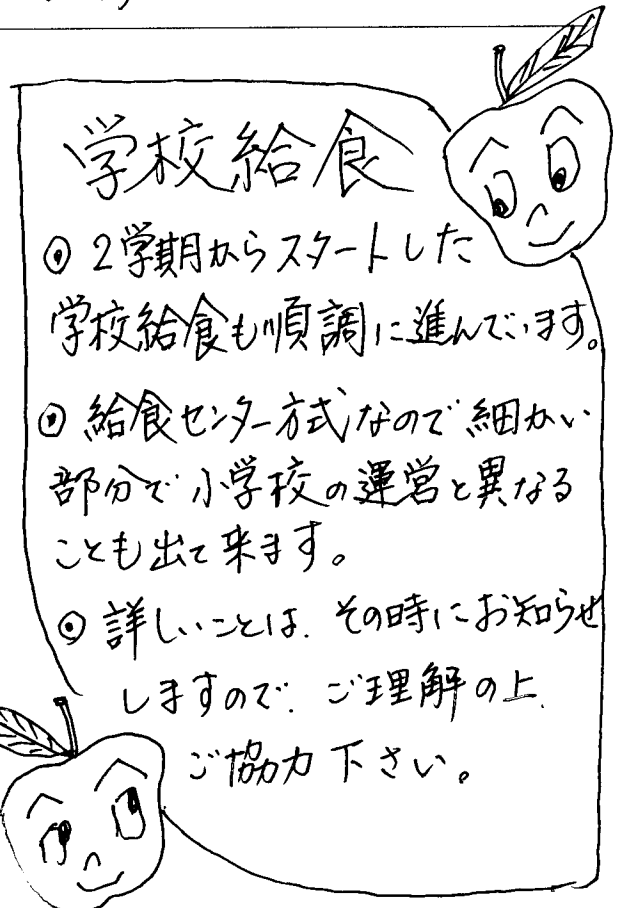 学校給食
⊙ 2学期からスタートした
学校給食も順調に進んでいます。
⊙ 給食センター方式なので細かい
部分で小学校の運営と異なる
ことも出て来ます。
⊙ 詳しいことは、その時にお知らせ
しますので、ご理解の上、
ご協力下さい。